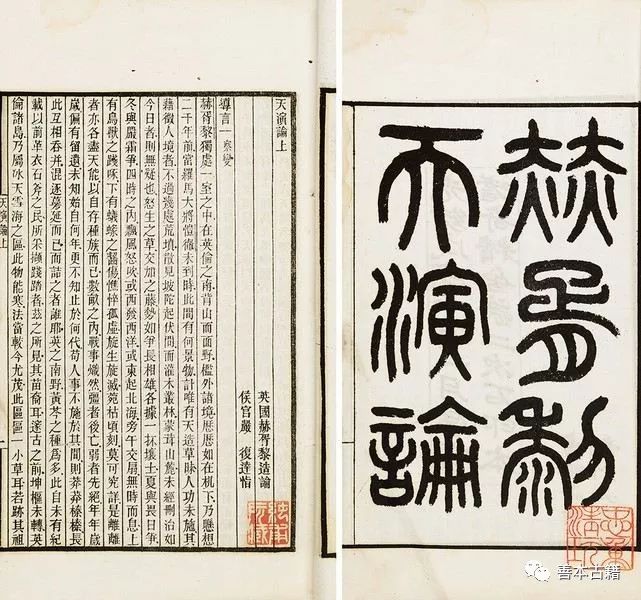 赫胥黎
天演論
天演論上
英國赫胥黎造論
侯官嚴 復達恉
導言一 察變
赫胥黎獨處一室之中在英倫之南背山而面野檻外諸境歷歷如在机下乃懸想
二千年前當羅馬大將愷徹未到時此間有何景物計唯有天造草昧人功未施其
藉徵人境者不過幾處荒墳散見坡陀起伏間而灌木叢林蒙茸山麓未經刪治如
今日者則無疑也怒生之草交加之藤勢如爭長相雄各據一抔壤土夏與畏日爭
冬與嚴霜爭四時之內飄風怒吹或西發西洋或東起北海旁午交扇無時而息上
有鳥獸之踐啄下有蟻蝝之齧傷憔悴孤虛旋生旋滅菀枯頃刻莫可究詳是離離
者亦各盡天能以自存種族而已數畝之內戰事熾然彊者後亡弱者先絕年年歲
歲偏有留遺未知始自何年更不知止於何代苟人事不施於其間則莽莽榛榛長
此互相吞并混逐蔓延而已而詰之者誰耶英之南野黃芩之種為多此自未有紀
載以前革衣石斧之民所采擷踐踏者茲之所見其苗裔耳邃古之前坤樞未轉英
倫諸島乃屬冰天雪海之區此物能寒法當較今尤茂此區區一小草耳若跡其祖
天演論上
善本古籍